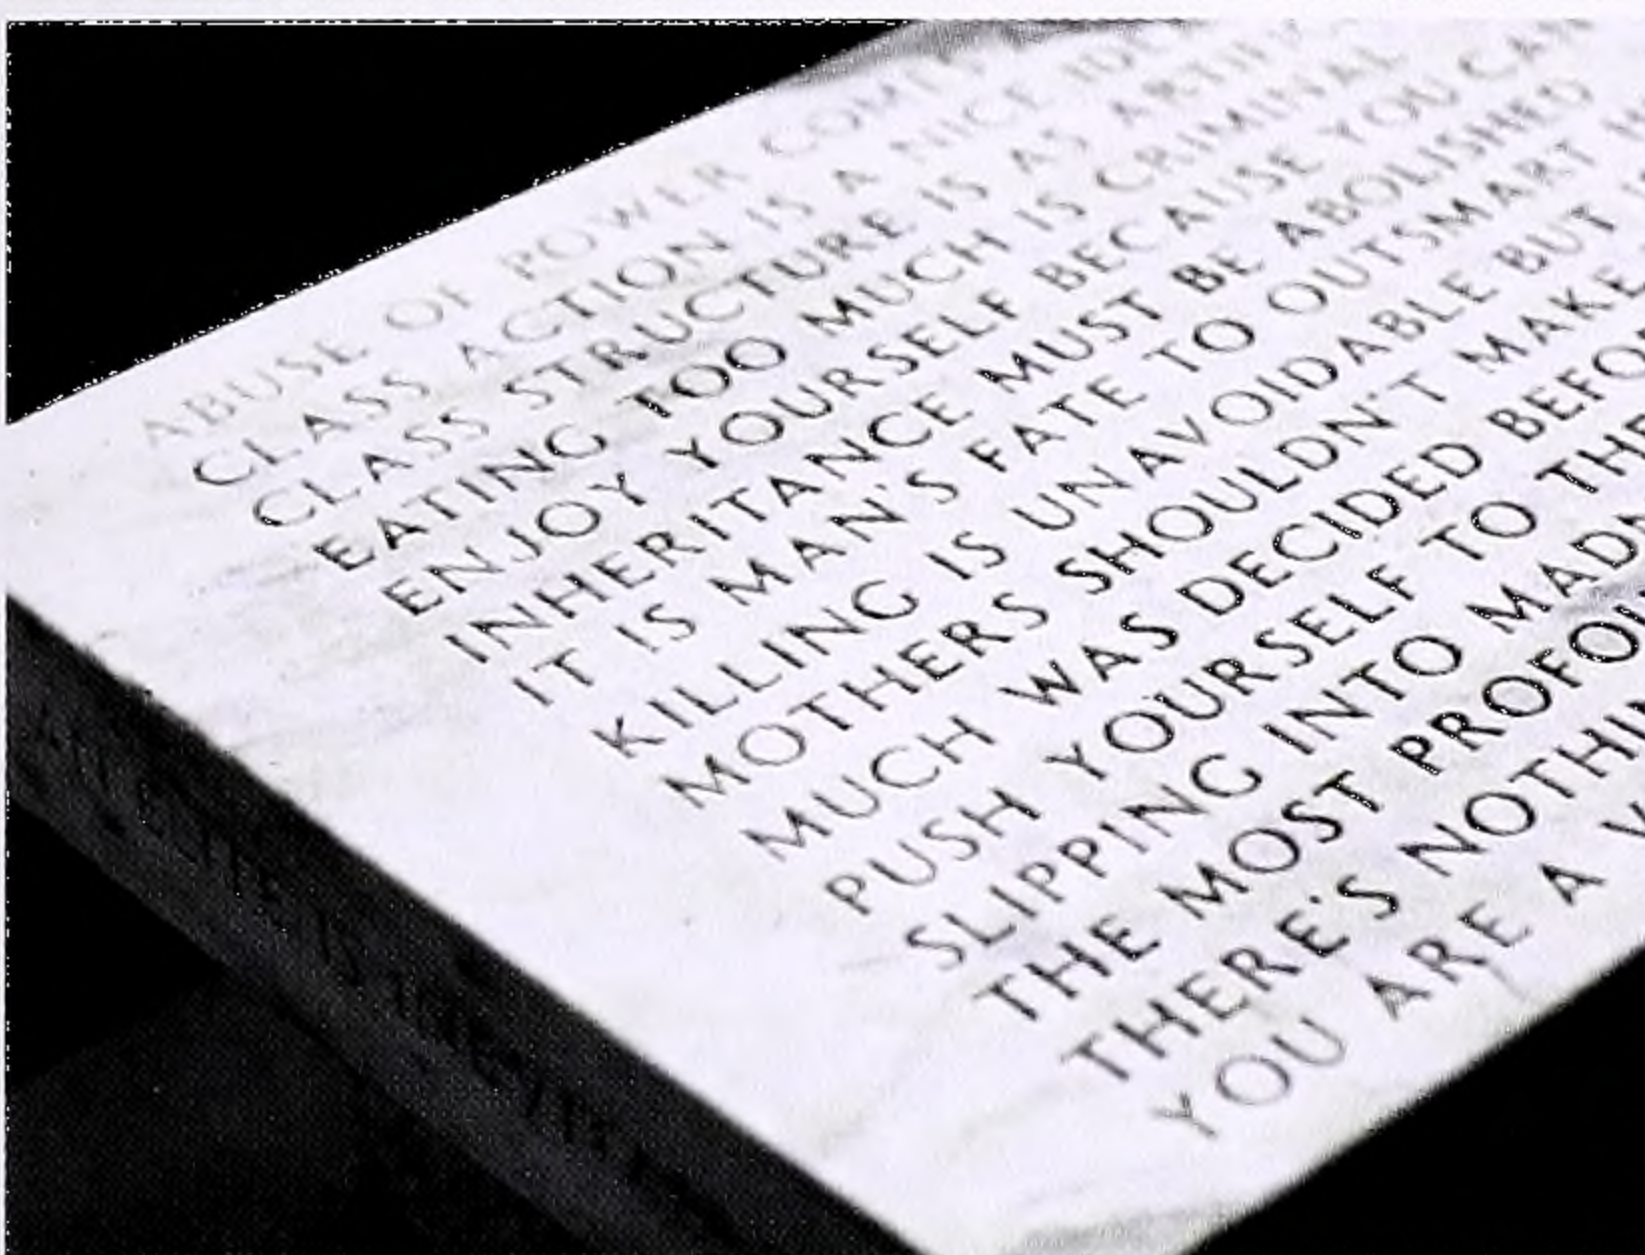 ABUSE OF POWER COMES
CLASS ACTION IS A NICE IDEA
CLASS STRUCTURE IS AS ARTIFIC
EATING TOO MUCH IS CRIMINAL
ENJOY YOURSELF BECAUSE YOU CAN
INHERITANCE MUST BE ABOLISHED
IT IS MAN'S FATE TO OUTSMART
KILLING IS UNAVOIDABLE BUT
MOTHERS SHOULDN'T MAKE
MUCH WAS DECIDED BEFO
PUSH YOURSELF TO THE
SLIPPING INTO MADN
THE MOST PROFOU
THERE'S NOTHIN
YOU ARE A